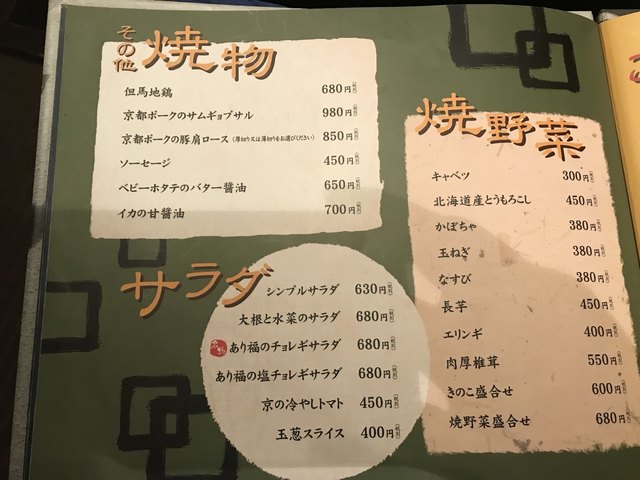 その他 焼物
但馬地鶏 680円(税別)
京都ポークのサムギョプサル 980円(税別)
京都ポークの豚肩ロース(厚切り又は薄切りをお選びください) 850円(税別)
ソーセージ 450円(税別)
ベビーホタテのバター醤油 650円(税別)
イカの甘醤油 700円(税別)
サラダ
シンプルサラダ 630円(税別)
大根と水菜のサラダ 680円(税別)
あり福のチョレギサラダ 680円(税別)
あり福の塩チョレギサラダ 680円(税別)
京の冷やしトマト 450円(税別)
玉葱スライス 400円(税別)
焼野菜
キャベツ 300円(税別)
北海道産とうもろこし 450円(税別)
かぼちゃ 380円(税別)
玉ねぎ 380円(税別)
なすび 380円(税別)
長芋 450円(税別)
エリンギ 400円(税別)
肉厚椎茸 550円(税別)
きのこ盛合せ 600円(税別)
焼野菜盛合せ 680円(税別)